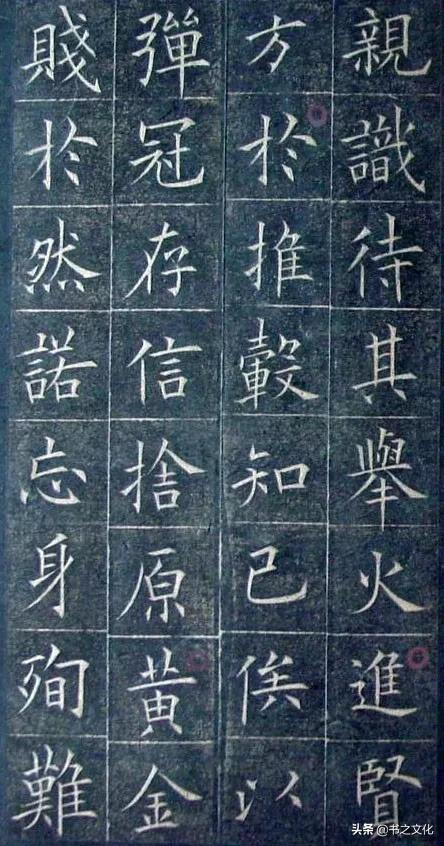 親識待其舉火進賢
方於推轂知己俟以
彈冠存信捨原黄金
賤於然諾忘身殉難
头条 @书之文化